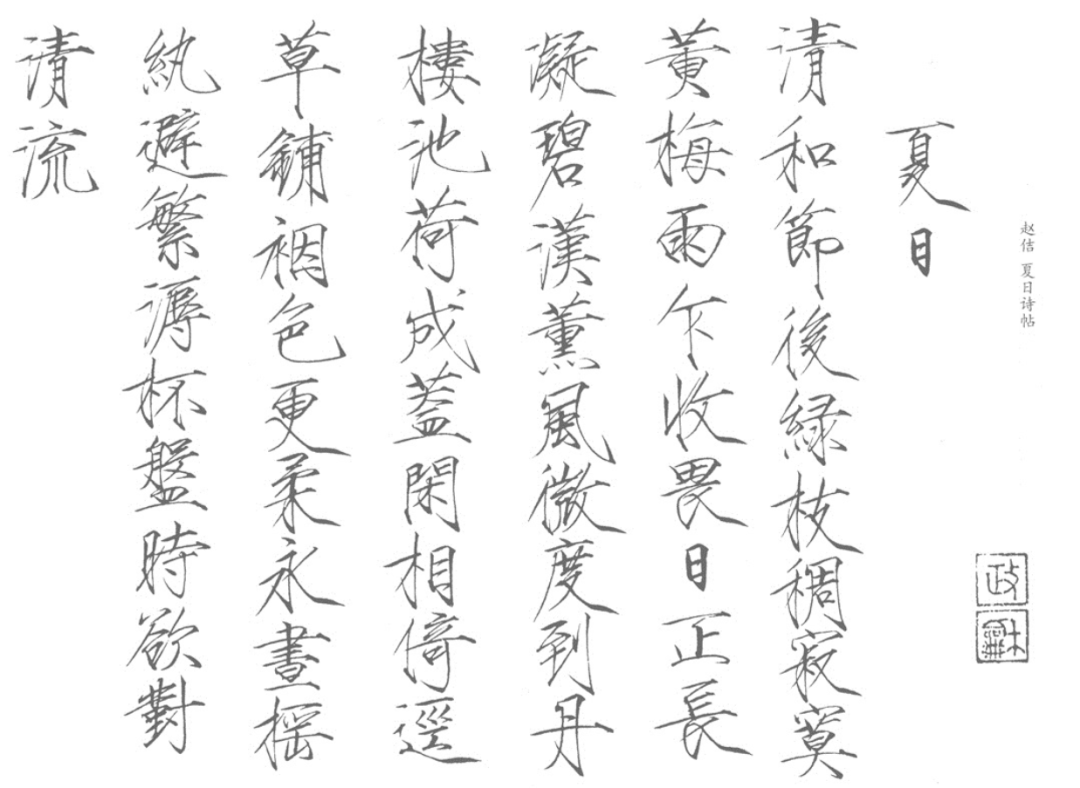 赵佶 夏日诗帖
夏日
清和節後緑枝稠寂寞
黄梅雨乍收畏日正長
凝碧漢薰風微度到丹
樓池荷成蓋閑相倚逕
草鋪裀色更柔永晝搖
紈避繁溽杯盤時欲對
清流
政
龢